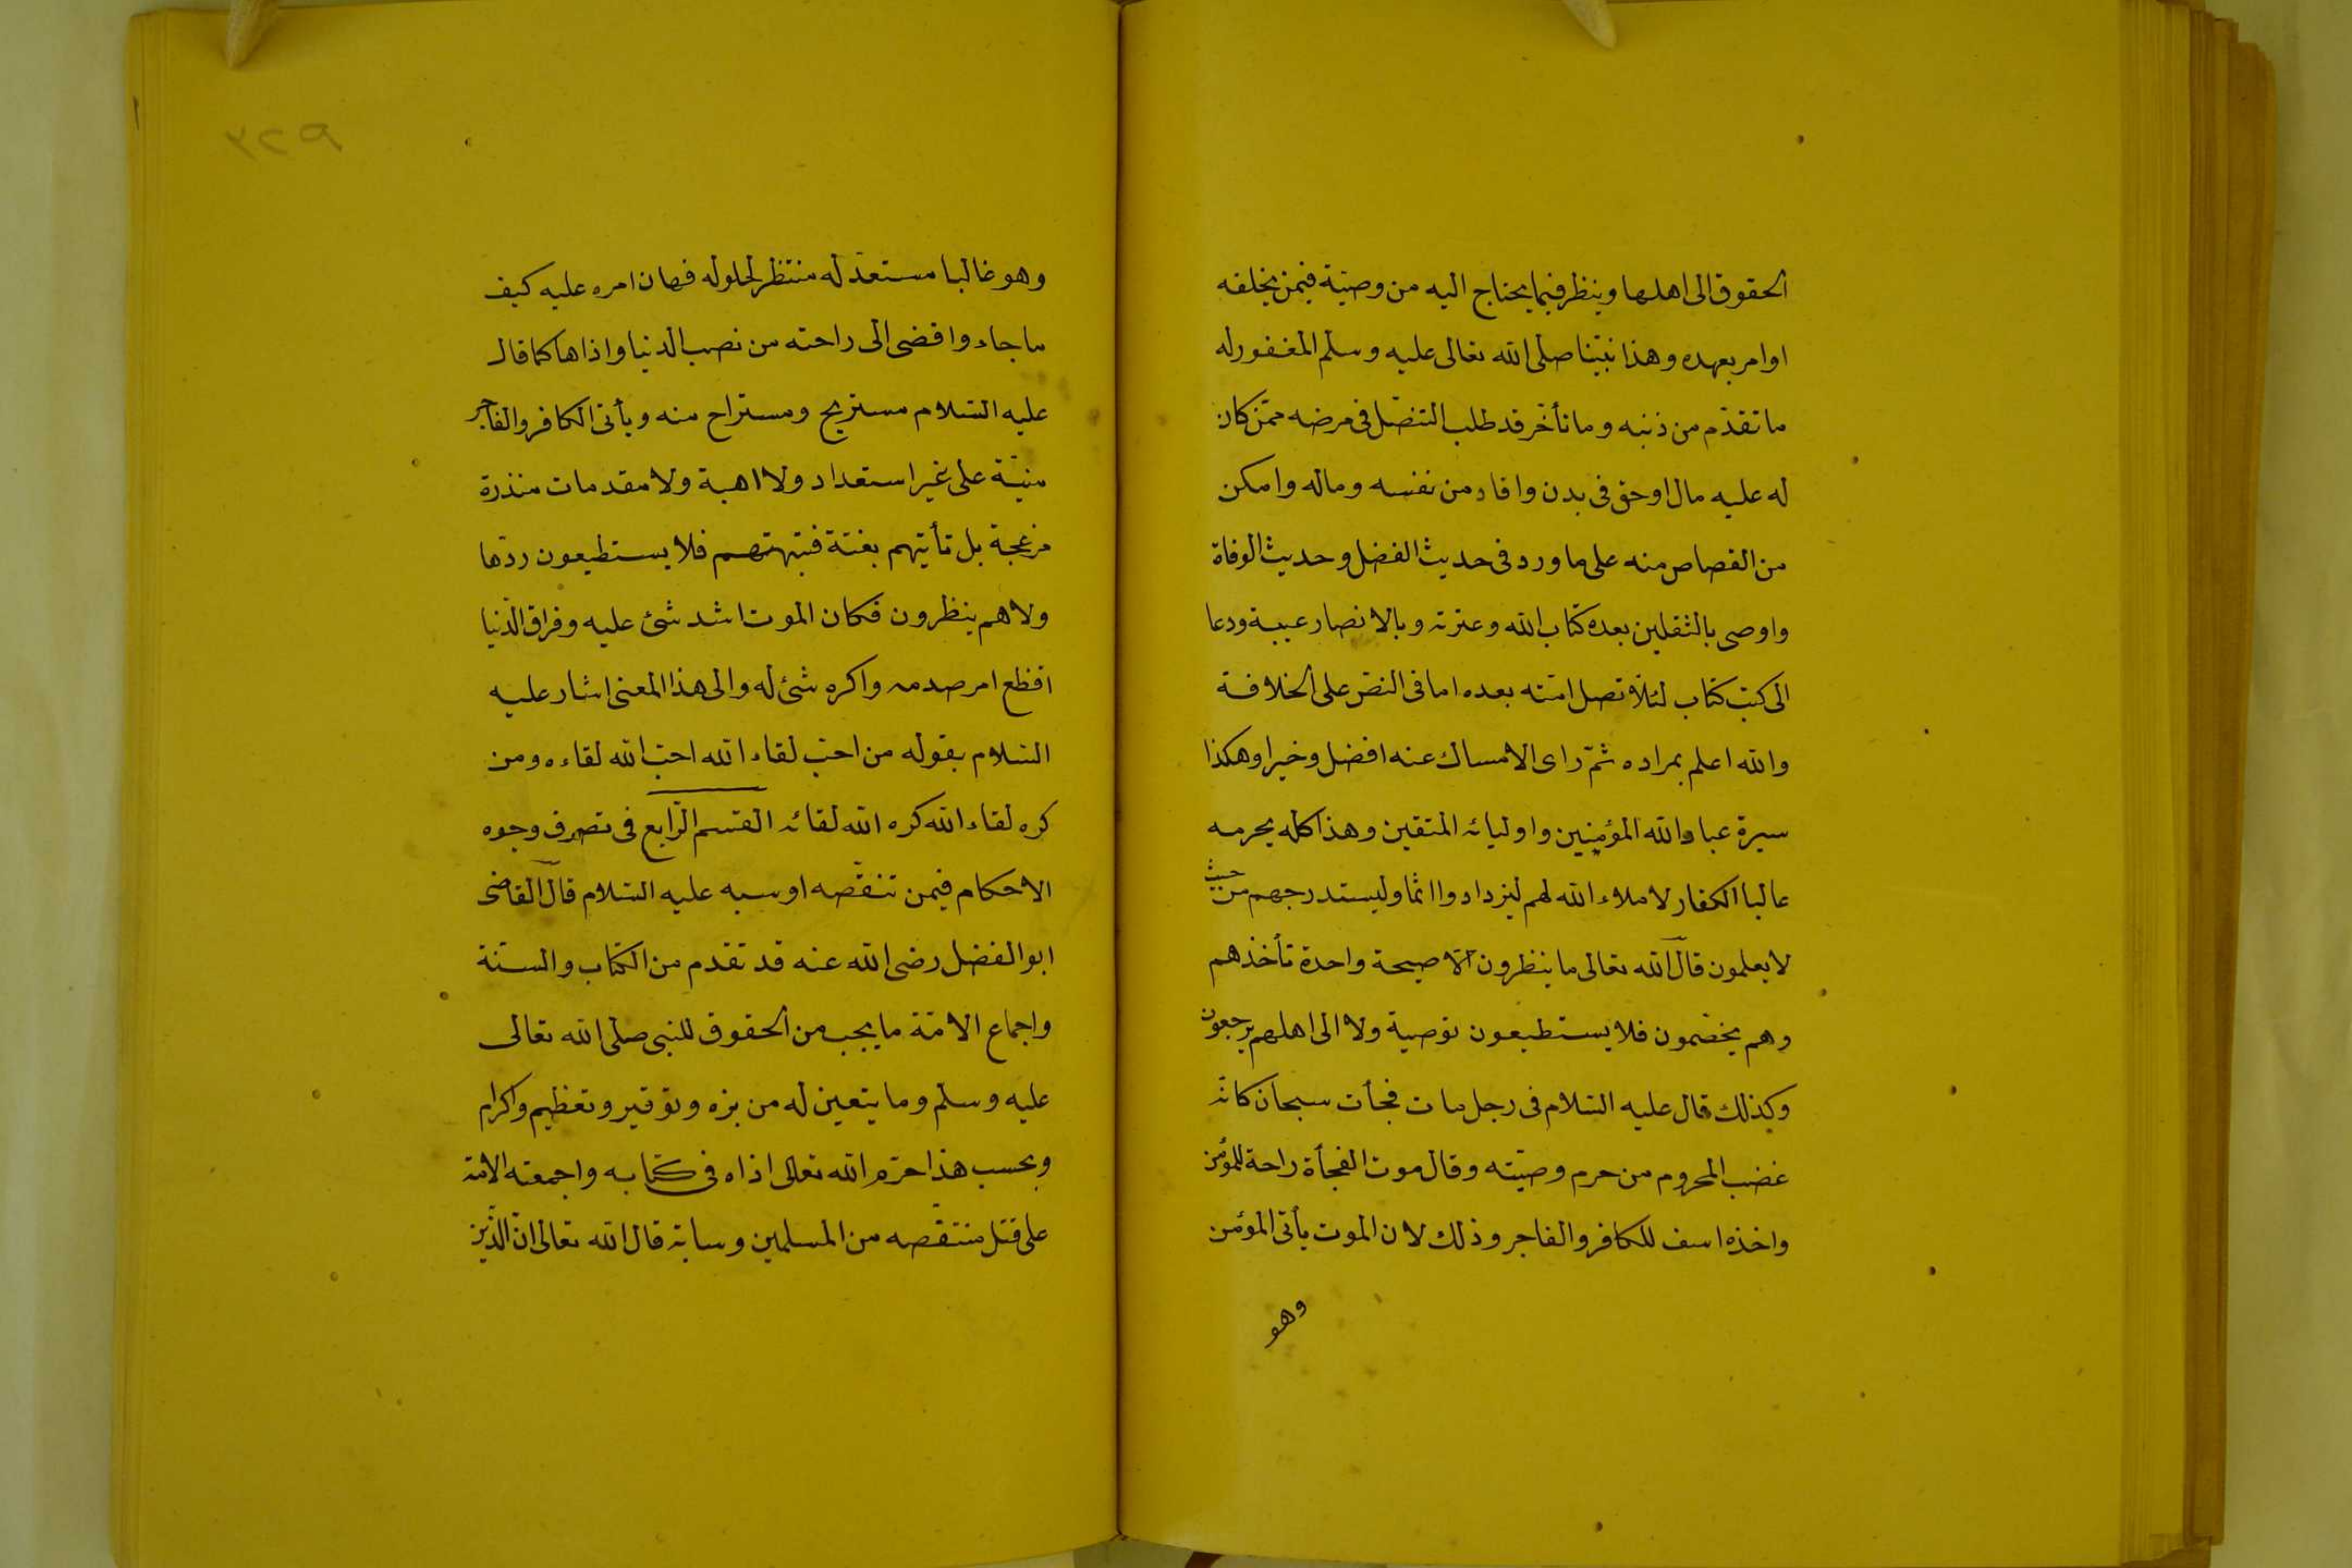 الحقوق الى اهلها وينظر فيما يحتاج اليه من وصيّة فيمن يخلفه
او امر بعهده وهذا نبيّنا صلى الله تعالى عليه وسلم المغفور له
ما تقدّم من ذنبه وما تأخّر قد طلب التنصّل فى مرضه ممّن كان
له عليه مال او حق فى بدن واقاد من نفسه وماله وامكن
من القصاص منه على ما ورد فى حديث الفضل وحديث الوفاة
واوصى بالثقلين بعده كتاب الله وعترته وبالانصار عيبة ودعا
الى كتب كتاب لئلّا تضل امّته بعده اما فى النصّ على الخلافة
والله اعلم بمراده ثمّ راى الامساك عنه افضل وخيرا وهكذا
سيرة عباد الله المؤمنين واوليائه المتقين وهذا كله يحرمه
غالبا الكفار لاملاء الله لهم ليزدادوا اثما وليستدرجهم من حيث
لا يعلمون قال الله تعالى ما ينظرون الّا صيحة واحدة تأخذهم
وهم يخصّمون فلا يستطيعون توصية ولا الى اهلهم يرجعون
وكذلك قال عليه السّلام فى رجل مات فجأت سبحان كانّه
غضب المحروم من حرم وصيّته وقال موت الفجأة راحة للمؤمن
واخذه اسف للكافر والفاجر وذلك لان الموت يأتى المؤمن
وهو
وهو غالبا مستعدّ له منتظر لحلوله فهان امره عليه كيف
ما جاء وافضى الى راحته من نصب الدنيا واذاها كما قال
عليه السّلام مستريح ومستراح منه ويأتى الكافر والفاجر
منيّة على غير استعداد ولا اهبة ولا مقدمات منذرة
مزعجة بل تأتيهم بغتة فتبهتهم فلا يستطيعون ردّها
ولا هم ينظرون فكان الموت اشد شئ عليه وفراق الدّنيا
افظع امر صدمه واكره شئ له والى هذا المعنى اشار عليه
السّلام بقوله من احبّ لقاء الله احبّ الله لقاءه ومن
كره لقاء الله كره الله لقائه القسم الرّابع فى تصرف وجوه
الاحكام فيمن تنقّصه او سبه عليه السّلام قال القاضى
ابو الفضل رضى الله عنه قد تقدم من الكتاب والسّنة
واجماع الامّة ما يجب من الحقوق للنبى صلى الله تعالى
عليه وسلم وما يتعين له من برّه وتوقير وتعظيم واكرام
وبحسب هذا حرّم الله تعالى اذاه فى كتابه واجمعته الامّة
على قتل منتقّصه من المسلمين وسابّه قال الله تعالى انّ الّذين